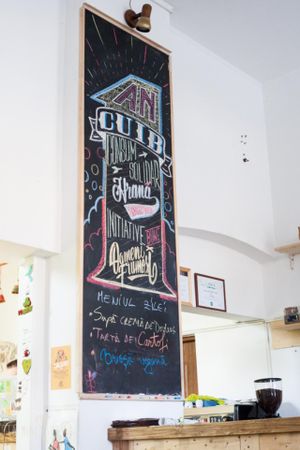 AN
CUIB
CONSUM
SOLIDAR
Hrană
INIȚIATIVE
BUNE
Oameni
Frumoși
MENIUL ZILEI
SUPĂ CREMĂ DE DOVLEAC
TARTĂ DE CARTOFI